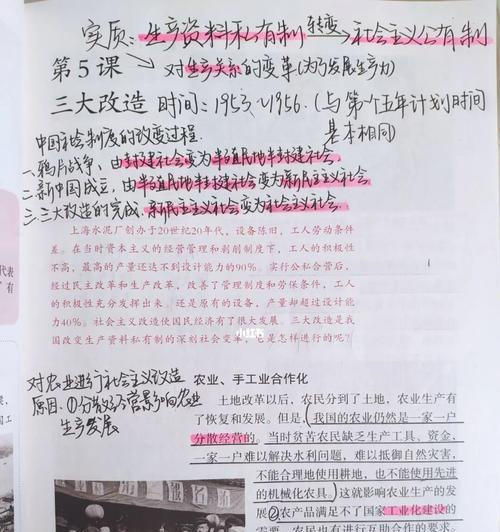 实质:生产资料私有制 转变→ 社会主义公有制
第5课 对生产关系的变革(为了发展生产力)
三大改造 时间:1953~1956.(与第一个五年计划时间
基本相同)
中国社会制度的改变过程.
一、鸦片战争,由封建社会变为半殖民地半封建社会.
二、新中国成立,由半殖民地半封建社会变为新民主主义社会
三、三大改造的完成.新民主主义社会变为社会主义社会.
上海水泥厂创办于20世纪20年代,设备陈旧,工人劳动条件
差。在当时资本主义的经营管理和剥削制度下,工人的积极性
不高,最高的产量还达不到设计能力的90%。实行公私合营后,
经过民主改革和生产改革,改善了管理制度和劳保条件,工人
的积极性充分发挥出来。还是原有的设备,产量却超过设计能
力40%。社会主义改造使国民经济有了很大发展。三大改造是我
国改变生产资料私有制的深刻社会变革,它是怎样进行的呢?
小红书
代表
"有
对农业进行社会主义改造
原因:①分散经营影响农业
生产发展
农业、手工业合作化
土地改革以后,农民分到了土地,农业生产有
了恢复和发展。但是,我国的农业仍然是一家一户
分散经营的。当时贫苦农民缺乏生产工具、资金,
一家一户难以解决水利问题,难以抵御自然灾害,
不能合理地使用耕地,也不能使用先进
的机械化农具。这就影响农业生产的发
展②农产品满足不了国家工业化建设的
需要。农民也有进行互助合作的要求。